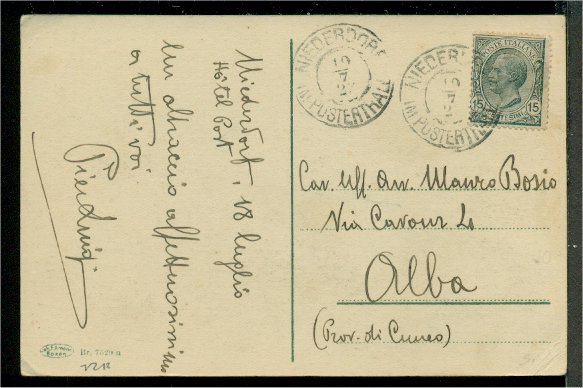 Niederdorf, 18 luglio
Hôtel Post
Un abbraccio affettuosissimo
a tutti voi
Pierluigi
NIEDERDORF
19
7
IM PUSTERTHALE
NIEDERD
19
7
IM PUSTERTHAL
POSTE ITALIANE
15 15
Cav. Uff. Avv. Mauro Bosio
Via Cavour 20
Alba
(Prov. di Cuneo)
BOZEN
Br. 7529 a